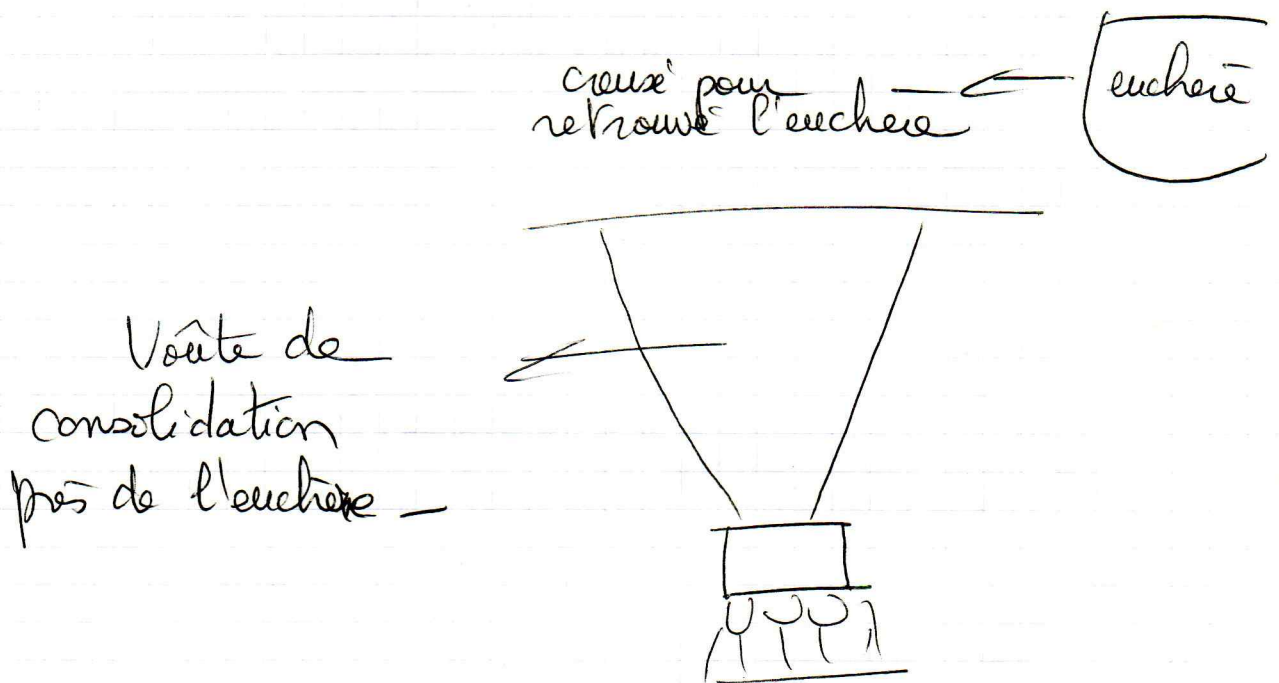 creusé pour
retrouvé l'euchere
euchere
Voûte de
consolidation
près de l'euchere